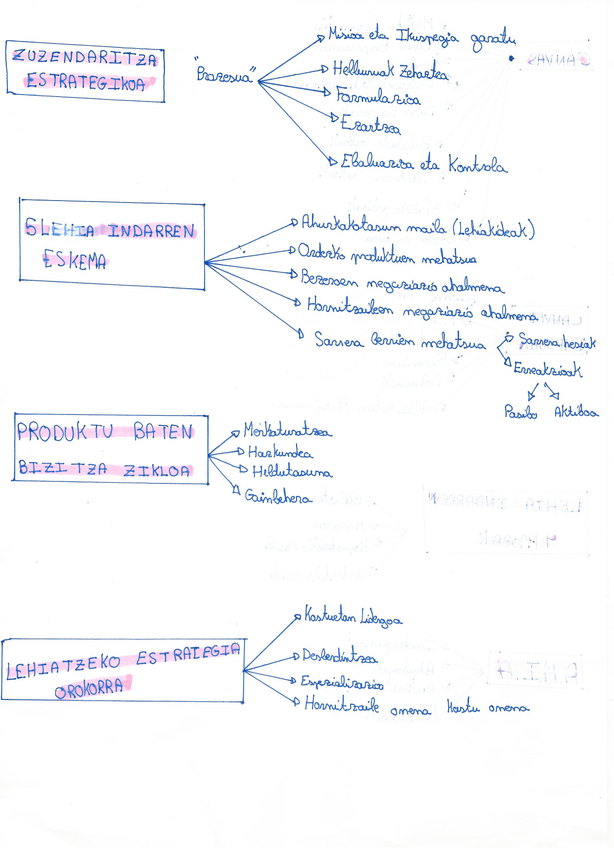 ZUZENDARITZA
ESTRATEGIKOA
"Prozesua"
Misioa eta Ikuspegia garatu
Helburuak Zehaztea
Formulazioa
Ezartzea
Ebaluazioa eta Kontrola
5 LEHIA INDARREN
ESKEMA
Ahurkakotasun maila (Lehiakideak)
Ordezko produktuen mehatsua
Bezeroen negoziazio ahalmena
Hornitzaileen negoziazio ahalmena
Sarrera berrien mehatsua
Sarrera hesiak
Erreakzioak
Pasibo Aktiboa
PRODUKTU BATEN
BIZITZA ZIKLOA
Merkaturatzea
Hazkundea
Heldutasuna
Gainbehera
LEHIATZEKO ESTRATEGIA
OROKORRA
Kostuetan Lidergoa
Desberdintzea
Espezializazioa
Hornitzaile onena kostu onena